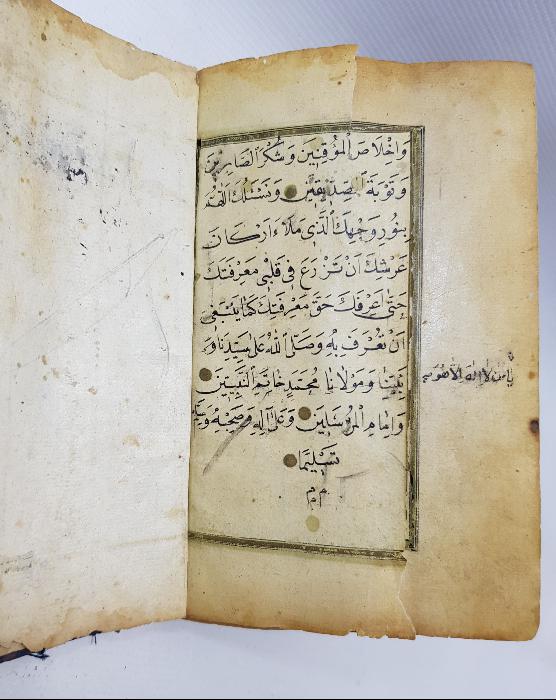 وَاِخْلَاصَ الْمُوقِنِينَ وَشُكْرَ الصَّابِرِينَ
وَتَوْبَةَ الصِّدِّيقِينَ وَنَسْئَلُكَ اللّٰهُمَّ
بِنُورِ وَجْهِكَ الَّذِي مَلَاءَ اَرْكَانَ
عَرْشِكَ اَنْ تَزْرَعَ فِي قَلْبِي مَعْرِفَتَكَ
حَتّٰى اَعْرِفَكَ حَقَّ مَعْرِفَتِكَ كَمَا يَنْبَغِي
اَنْ تُعْرَفَ بِهِ وَصَلَّى اللّٰهُ عَلٰى سَيِّدِنَا وَ
نَبِيِّنَا وَمَوْلَانَا مُحَمَّدٍ خَاتَمِ النَّبِيِّينَ
وَاِمَامِ الْمُرْسَلِينَ وَعَلٰى اٰلِهِ وَصَحْبِهِ وَسَلِّمْ
تَسْلِيمًا
م م م
يا من لا اله الا هو